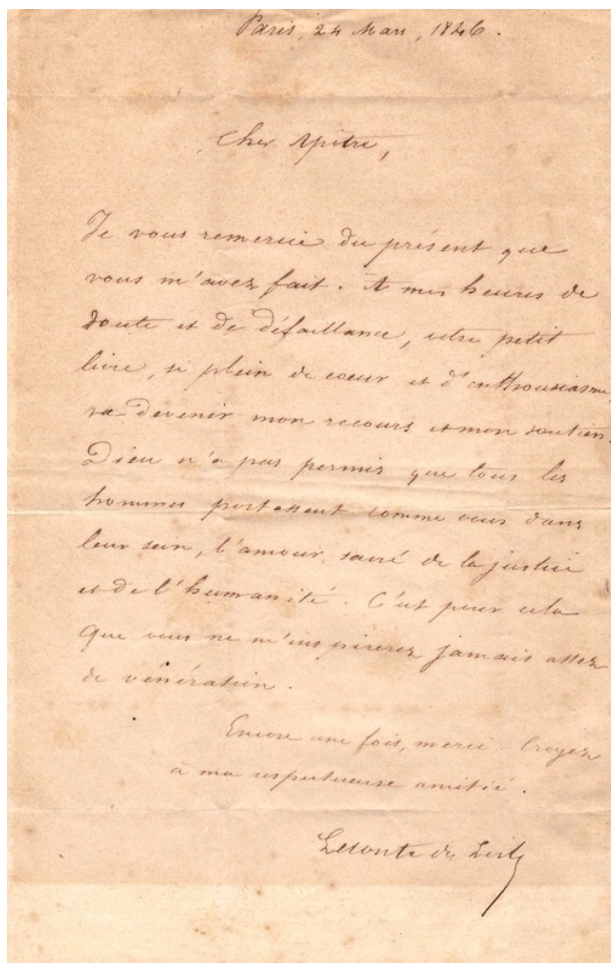 Paris, 24 Mars, 1846.
Cher Apôtre,
Je vous remercie du présent que
vous m'avez fait. A mes heures de
doute et de défaillance, votre petit
livre, si plein de cœur et d'enthousiasme,
va devenir mon recours et mon soutien.
Dieu n'a pas permis que tous les
hommes portassent comme vous dans
leur sein, l'amour sacré de la justice
et de l'humanité. C'est pour cela
que vous ne m'inspirerez jamais assez
de vénération.
Encore une fois, merci. Croyez
à ma respectueuse amitié.
Leconte de Lisle